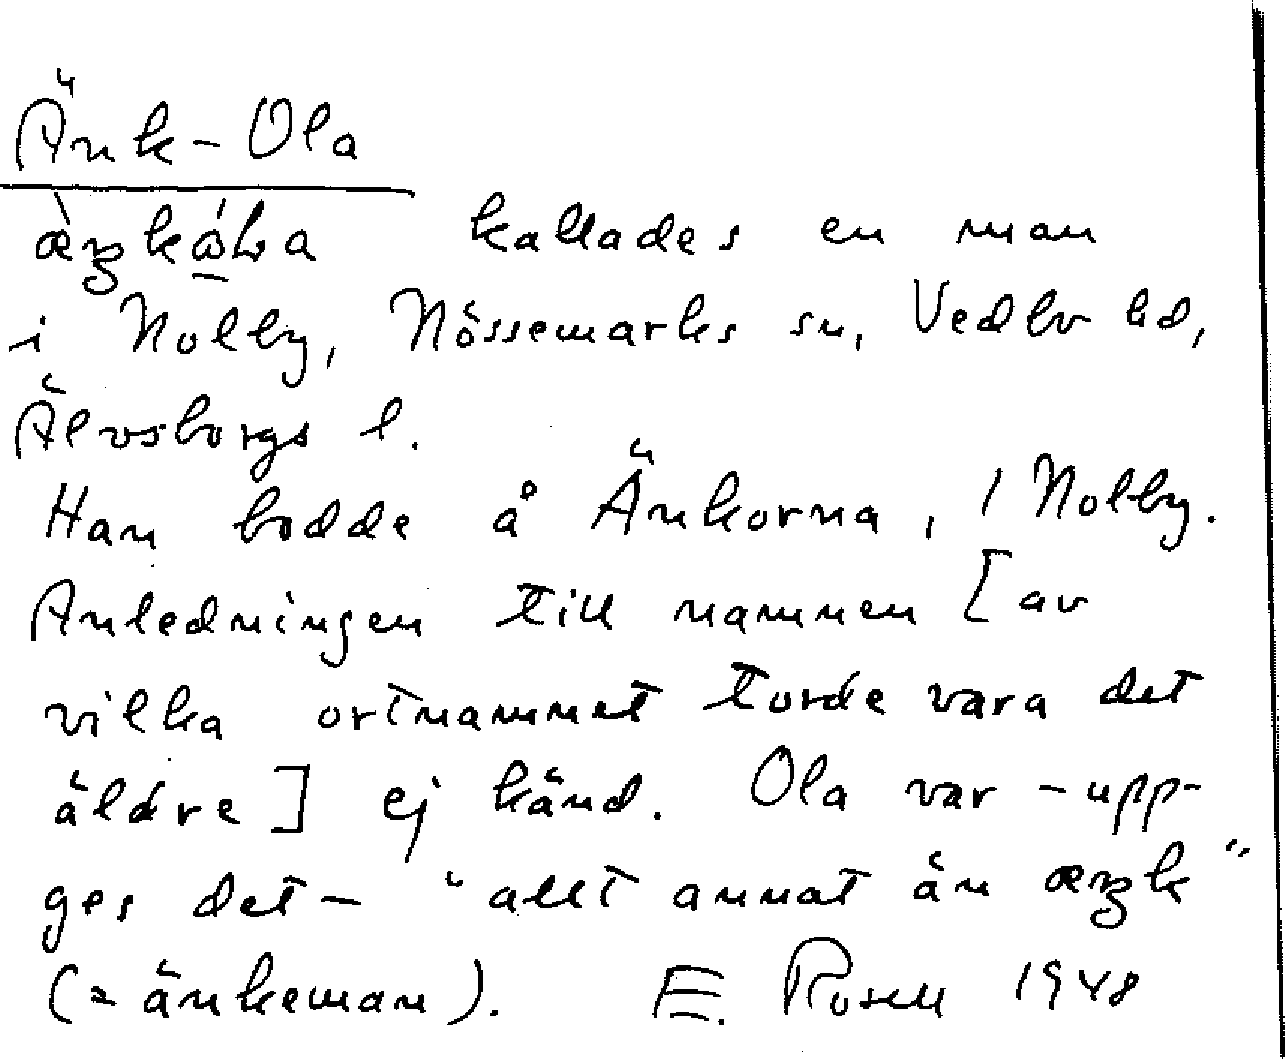 Änk-Ola
kallades en man
i Nolby, Nössemarks sn, Vedbo hd,
Älvsborgs l.
Han bodde å Änkorna, / Nolby.
Anledningen till namnen [av
vilka ortnamnet torde vara det
äldre] ej känd. Ola var - upp-
ges det - "allt annat än æŋk"
(= änkeman). E. Rosell 1948